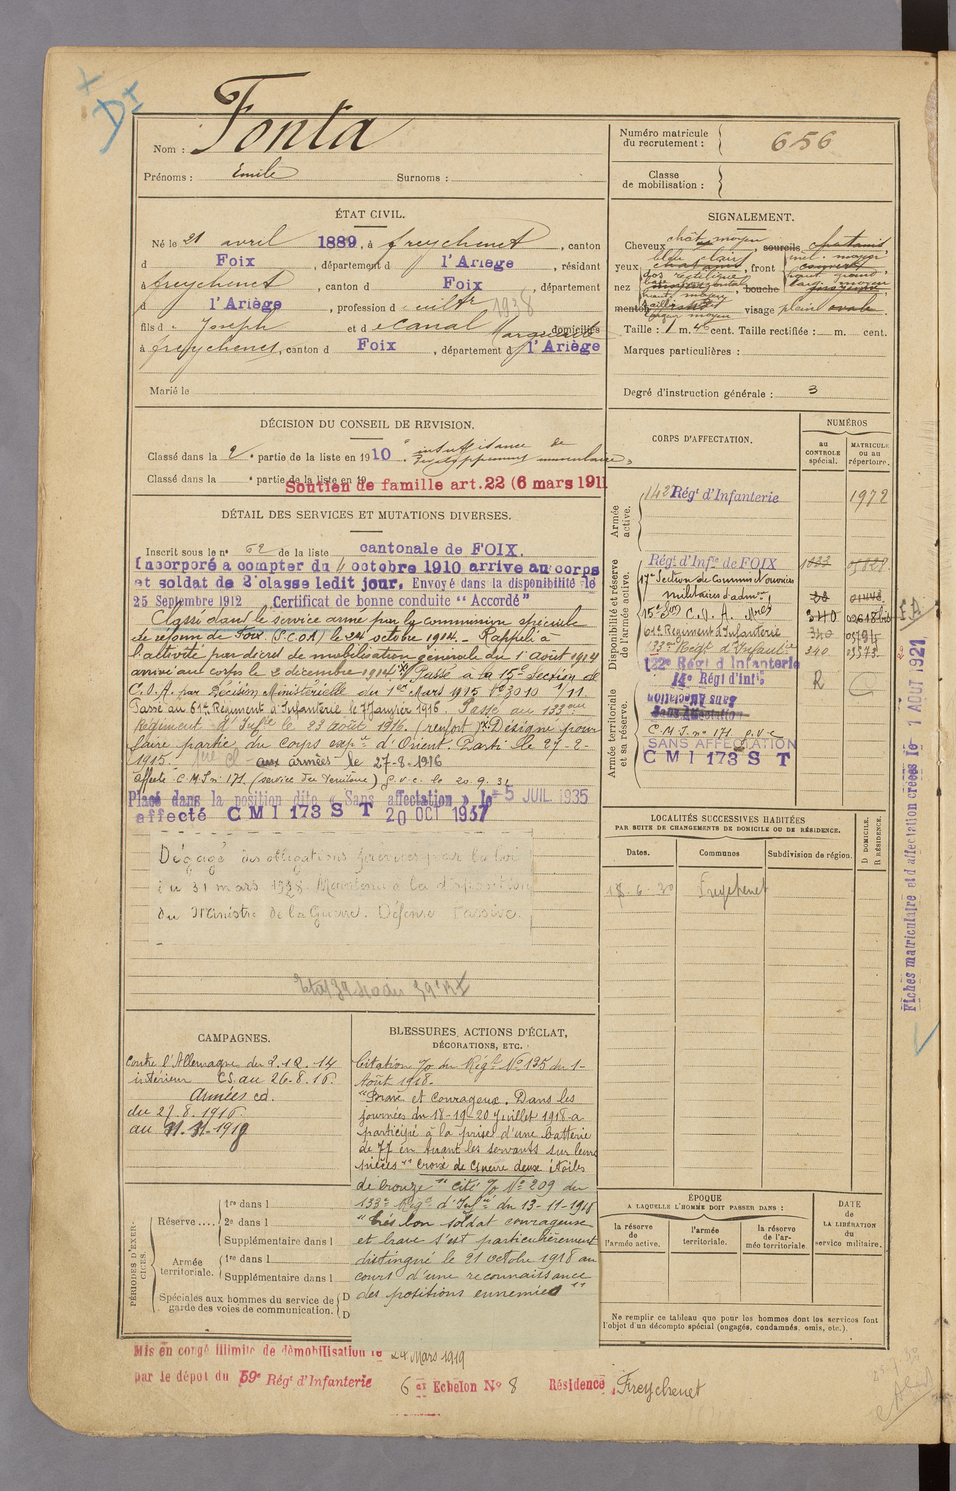 Nom : Fonta
Prénoms : Emile Surnoms :
Numéro matricule du recrutement : 656
Classe de mobilisation :
ÉTAT CIVIL.
Né le 21 avril 1889, à Freychenet, canton
d Foix, département d l'Ariège, résidant
à Freychenet, canton d Foix, département
d l'Ariège, profession d cultr 1938
fils d Joseph et d Canal Marguerite domiciliés
à Freychenet, canton d Foix, département d l'Ariège
Marié le
SIGNALEMENT.
Cheveux chât moyen, sourcils chatains,
yeux bleu clair, front
nez dos rectiligne bouche
menton visage plein ovale
Taille : 1 m. cent. Taille rectifiée : m. cent.
Marques particulières :
Degré d'instruction générale : 3
DÉCISION DU CONSEIL DE REVISION.
Classé dans la 2e partie de la liste en 1910. insuffisance de
développement musculaire
Classé dans la e partie de la liste en 19
Soutien de famille art. 22 (6 mars 1911
DÉTAIL DES SERVICES ET MUTATIONS DIVERSES.
Inscrit sous le no 62 de la liste cantonale de FOIX.
Incorporé a compter du 4 octobre 1910 arrivé au corps
et soldat de 2e classe ledit jour. Envoyé dans la disponibilité le
25 Septembre 1912 Certificat de bonne conduite "Accordé"
Classé dans le service armé par la commission spéciale
de réforme de Foix (S.C.O.A) le 24 octobre 1914. - Rappelé à
l'activité par décret de mobilisation générale du 1 Août 1914
arrivé au corps le 2 décembre 1914. Passé à la 15e Section de
C.O.A. par Décision Ministérielle du 1er Mars 1915 No 3010 1/11.
Passé au 61e Régiment d'Infanterie le 7 Janvier 1916. Passé au 133ème
Régiment d'Infie le 23 août 1916. (renfort). Désigné pour
faire partie du Corps expre d'Orient. Parti le 27-2-
1915. aux armées le 27-8-1916
Affecté C.M.I. n° 171. (service du Territoire) g.v.c. le 20.9.31
Placé dans la position dite « Sans affectation » le 5 JUIL 1935
affecté CMI 173 ST 20 OCT 1937
Dégagé des obligations par la loi
du 31 mars 1928. Maintenu à la disposition
du Ministre de la Guerre. Défense Passive.
CORPS D'AFFECTATION.
NUMÉROS
au CONTROLE spécial.
MATRICULE ou au répertoire.
Armée active.
142 Régt d'Infanterie 1972
Disponibilité et réserve de l'armée active.
Régt d'Infie de FOIX
17e Section de Commis et ouvriers
militaires d'admon
15e Son C.O.A.
61e Régiment d'Infanterie 340
133e Régt d'Infantie 340
122e Régt d'Infanterie
14e Régt d'Infie R
Armée territoriale et sa réserve.
Sans Affectation
Sans Affectation
C.M.I. n° 171. g.v.c
SANS AFFECTATION
CMI 173 ST
Fiches matriculaire et d'affectation créées le 1 AOUT 1921
LOCALITÉS SUCCESSIVES HABITÉES
PAR SUITE DE CHANGEMENTS DE DOMICILE OU DE RÉSIDENCE.
Dates. Communes Subdivision de région. D DOMICILE. R RÉSIDENCE.
18-6-20 Freychenet
CAMPAGNES.
Contre l'Allemagne du 2.12.14
intérieur C.S. au 26.8.16.
Armées cd.
du 27.8.1916
au
BLESSURES, ACTIONS D'ÉCLAT,
DÉCORATIONS, ETC.
Citation % du Régt No 135 du 1-
Août 1918.
"Brave et courageux. Dans les
journées du 18-19-20 Juillet 1918 a
participé à la prise d'une batterie
de 77 en tuant les servants sur leurs
pièces" Croix de Guerre deux étoiles
de bronze "Cité % No 209 du
133e Régt d'Infie du 13-11-1918
"Très bon soldat courageux
et brave s'est particulièrement
distingué le 21 octobre 1918 au
cours d'une reconnaissance
des positions ennemies"
PÉRIODES D'EXERCICES.
Réserve....
1re dans l
2e dans l
Supplémentaire dans l
Armée territoriale.
1re dans l
Supplémentaire dans l
Spéciales aux hommes du service de garde des voies de communication. D D
ÉPOQUE
A LAQUELLE L'HOMME DOIT PASSER DANS :
la réserve de l'armée active.
l'armée territoriale.
la réserve de l'armée territoriale
DATE de LA LIBÉRATION du service militaire.
Ne remplir ce tableau que pour les hommes dont les services font
l'objet d'un décompte spécial (engagés, condamnés, omis, etc.).
Mis en congé illimité de démobilisation le 24 Mars 1919
par le dépôt du 59e Régt d'Infanterie 6e Echelon No 8 Résidence, Freychenet